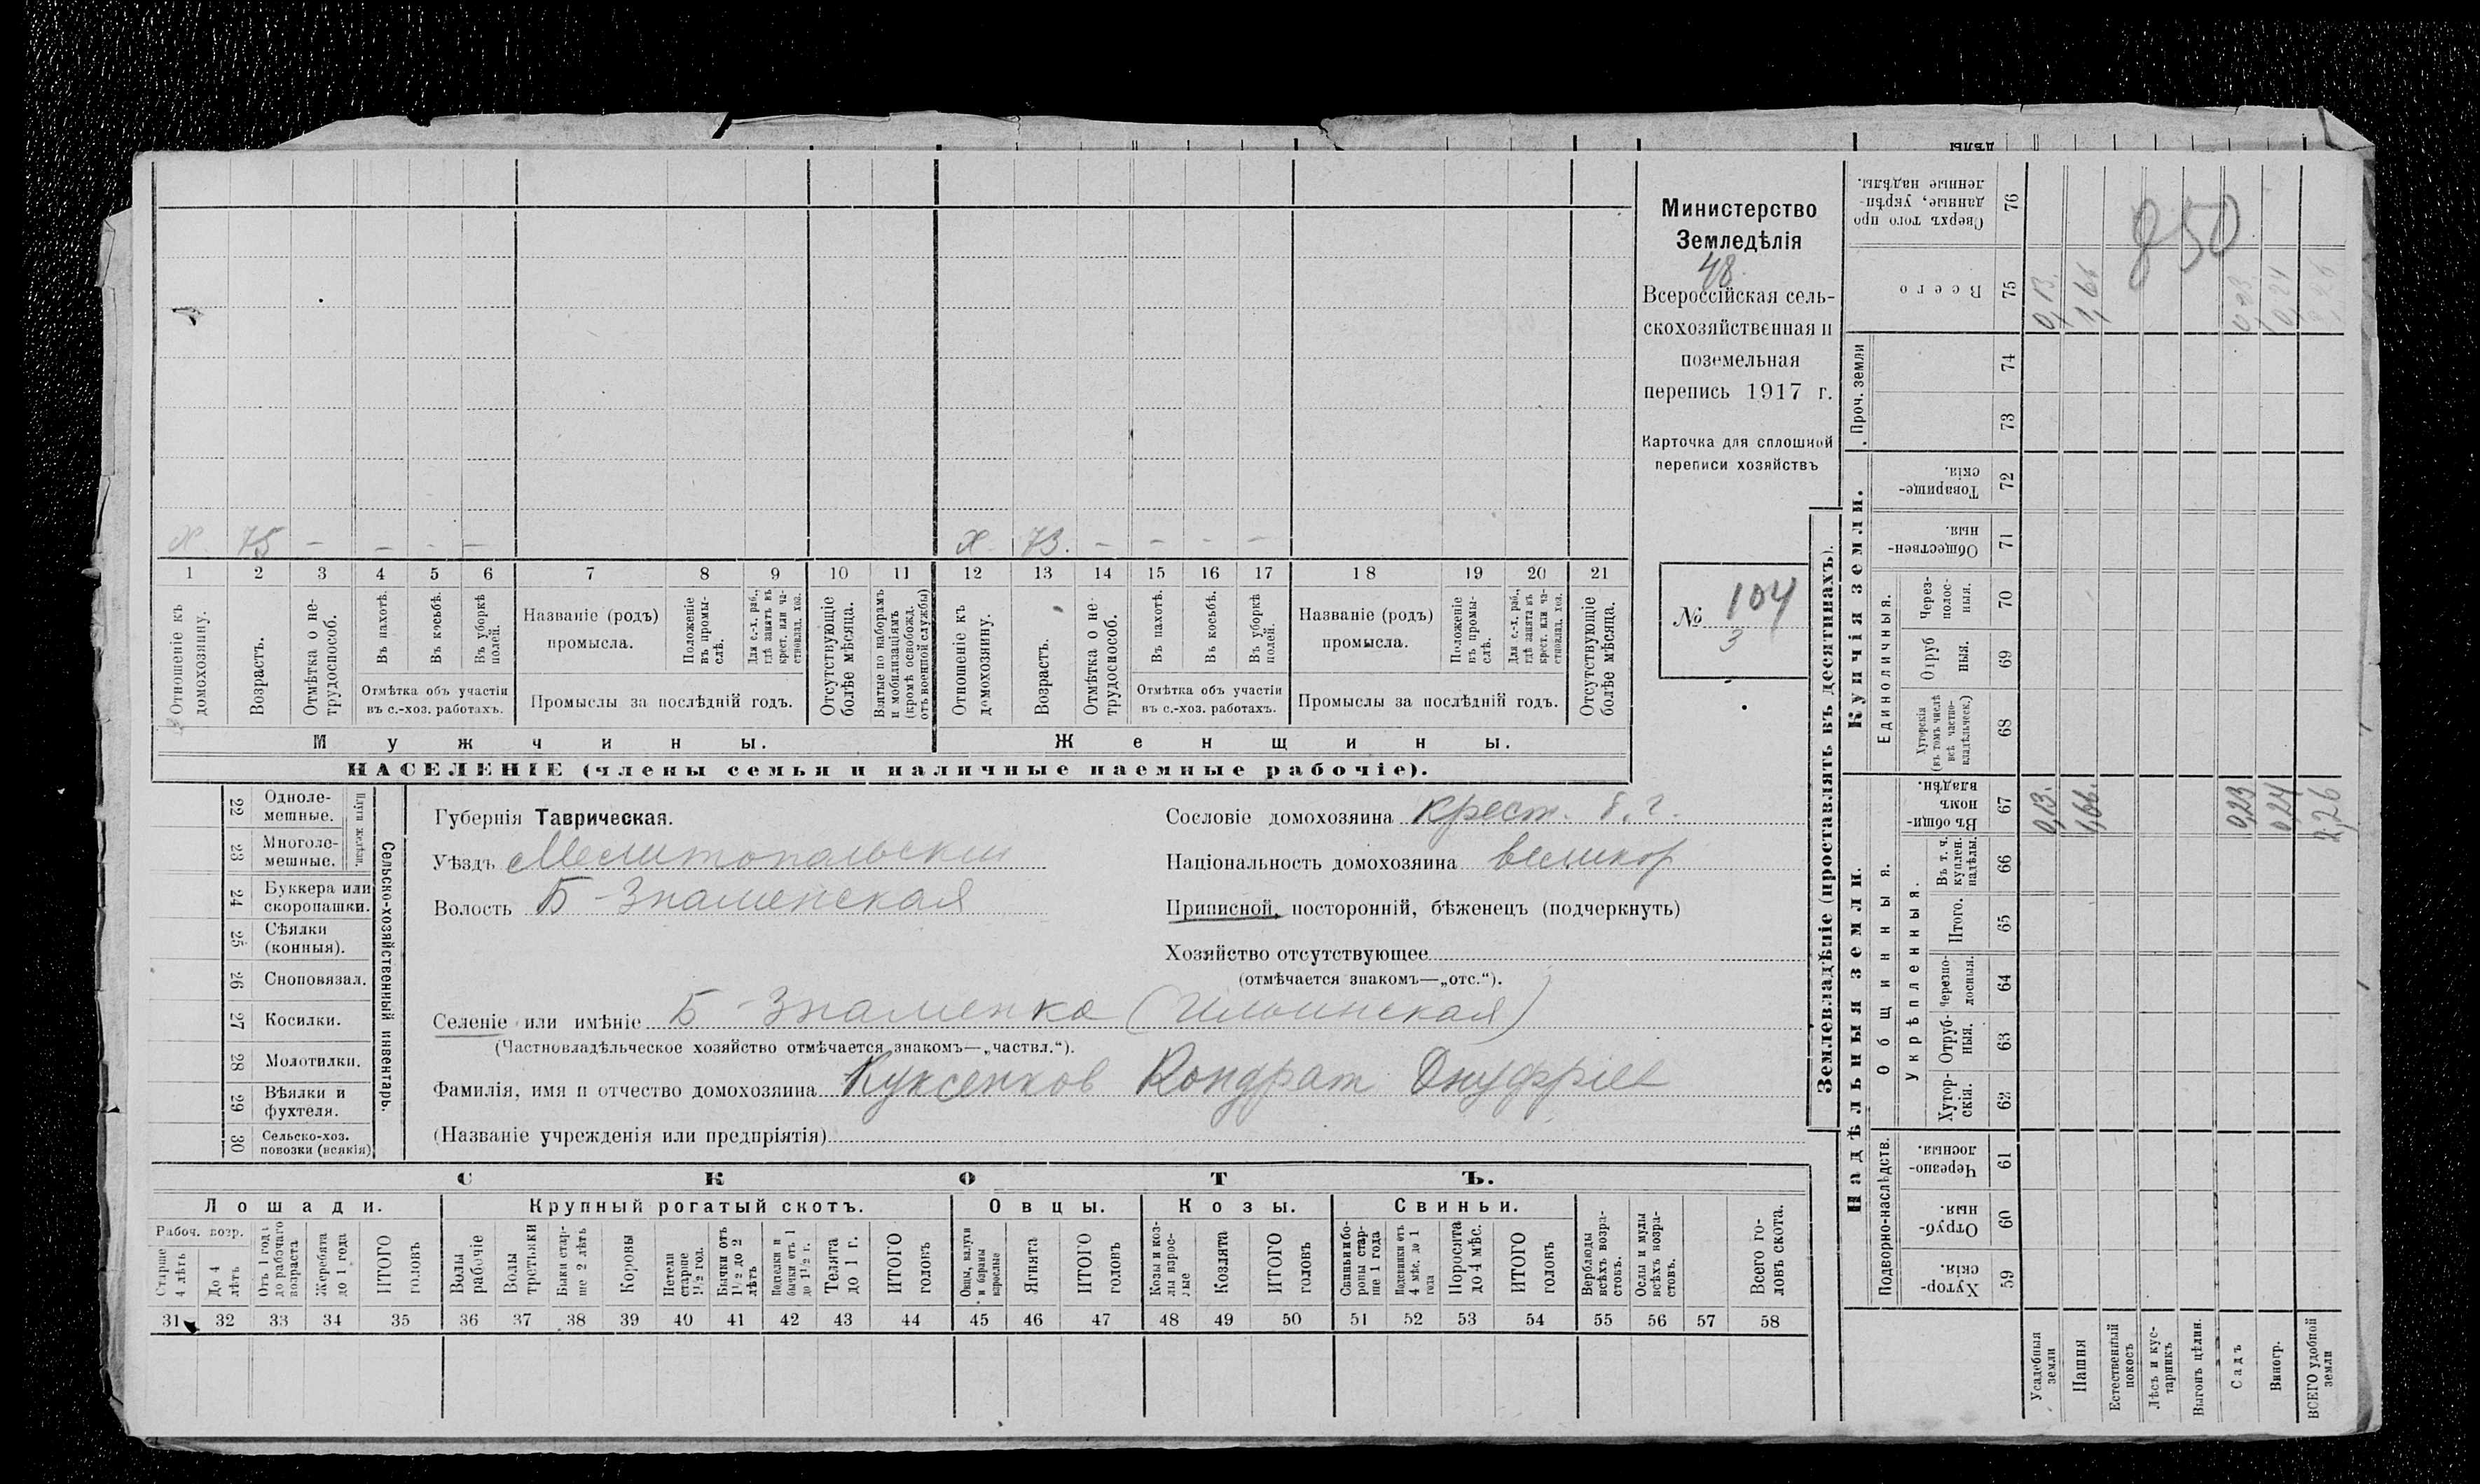 Министерство
Земледѣлія
48.
Всероссійская сель-
скохозяйственная и
поземельная
перепись 1917 г.
Карточка для сплошной
переписи хозяйствъ
№ 104
3
х 75 – – - – х 73. – – - –
1 2 3 4 5 6 7 8 9 10 11 12 13 14 15 16 17 18 19 20 21
Отношеніе къ домохозяину.
Возрастъ.
Отмѣтка о не-трудоспособ.
Въ пахотѣ.
Въ косьбѣ.
Въ уборкѣ полей.
Отмѣтка объ участіи
въ с.-хоз. работахъ.
Названіе (родъ)
промысла.
Положеніе въ промы-слѣ.
Для с.-х. раб., гдѣ занятъ въ крест. или ча-стновлад. хоз.
Промыслы за послѣдній годъ.
Отсутствующіе болѣе мѣсяца.
Взятые по наборамъ и мобилизаціямъ (кромѣ освобожд. отъ военной службы)
Отношеніе къ домохозяину.
Возрастъ.
Отмѣтка о не-трудоспособ.
Въ пахотѣ.
Въ косьбѣ.
Въ уборкѣ полей.
Отмѣтка объ участіи
въ с.-хоз. работахъ.
Названіе (родъ)
промысла.
Положеніе въ промы-слѣ.
Для с.-х. раб., гдѣ занята въ крест. или ча-стновлад. хоз.
Промыслы за послѣдній годъ.
Отсутствующіе болѣе мѣсяца.
Мужчины. Женщины.
НАСЕЛЕНІЕ (члены семьи и наличные наемные рабочіе).
Сельско-хозяйственный инвентарь.
22 Одноле-мешные.
23 Многоле-мешные.
24 Буккера или скоропашки.
25 Сѣялки (конныя).
26 Сноповязал.
27 Косилки.
28 Молотилки.
29 Вѣялки и фухтеля.
30 Сельско-хоз. повозки (всякія)
Губернія Таврическая.
Уѣздъ Мелитопольскій
Волость Б-Знаменская
Сословіе домохозяина крест.
Національность домохозяина великор
Приписной, посторонній, бѣженецъ (подчеркнуть)
Хозяйство отсутствующее
(отмѣчается знакомъ—„отс.“).
Селеніе или имѣніе Б-Знаменка (Ильинская)
(Частновладѣльческое хозяйство отмѣчается знакомъ—„частвл.“).
Фамилія, имя и отчество домохозяина Куксенков Кондрат Онуфріев
(Названіе учрежденія или предпріятія)
СКОТЪ.
Лошади. Крупный рогатый скотъ. Овцы. Козы. Свиньи.
Рабоч. возр.
Старше 4 лѣтъ
До 4 лѣтъ
Отъ 1 года до рабочаго возраста
Жеребята до 1 года
ИТОГО головъ
Волы рабочіе
Волы третьяки
Быки стар-ше 2 лѣтъ
Коровы
Нетели старше 1½ год.
Бычки отъ 1½ до 2 лѣтъ
Подтелки и бычки отъ 1 до 1½ г.
Телята до 1 г.
ИТОГО головъ
Овцы, валухи и бараны взрослые
Ягнята
ИТОГО головъ
Козы и коз-лы взрос-лые
Козлята
ИТОГО головъ
Свиньи и бо-ровы стар-ше 1 года
Подсвинки отъ 4 мѣс. до 1 года
Поросята до 4 мѣс.
ИТОГО головъ
Верблюды всѣхъ возра-стовъ.
Ослы и мулы всѣхъ возра-стовъ.
Всего го-ловъ скота.
31 32 33 34 35 36 37 38 39 40 41 42 43 44 45 46 47 48 49 50 51 52 53 54 55 56 57 58
Землевладѣніе (проставлять въ десятинахъ).
Надѣльныя земли. Купчія земли. Проч. земли
Подворно-наслѣдств. Общинныя. Единоличныя.
Укрѣпленныя.
59 Хутор-скія.
60 Отруб-ныя.
61 Черезпо-лосныя.
62 Хутор-скія.
63 Отруб-ныя.
64 Черезпо-лосныя.
65 Итого.
66 Въ т. ч. куплен. надѣлы.
67 Въ общи-номъ владѣн.
68 Хуторскія (въ томъ числѣ всѣ частно-владѣльческ.)
69 Отруб ныя.
70 Через-полос-ныя.
71 Обществен-ныя.
72 Товарище-скія.
73
74
75 Всего
76 Сверхъ того про данные, укрѣп-ленные надѣлы.
Усадебныя земли 0,13. 0,13.
Пашня 1,66. 1,66
Естественный покосъ
Лѣсъ и кус-тарникъ
Выгонъ цѣлин.
Садъ 0,23 0,23
Виногр. 0,24 0,24
ВСЕГО удобной земли 2,26 2,26
850